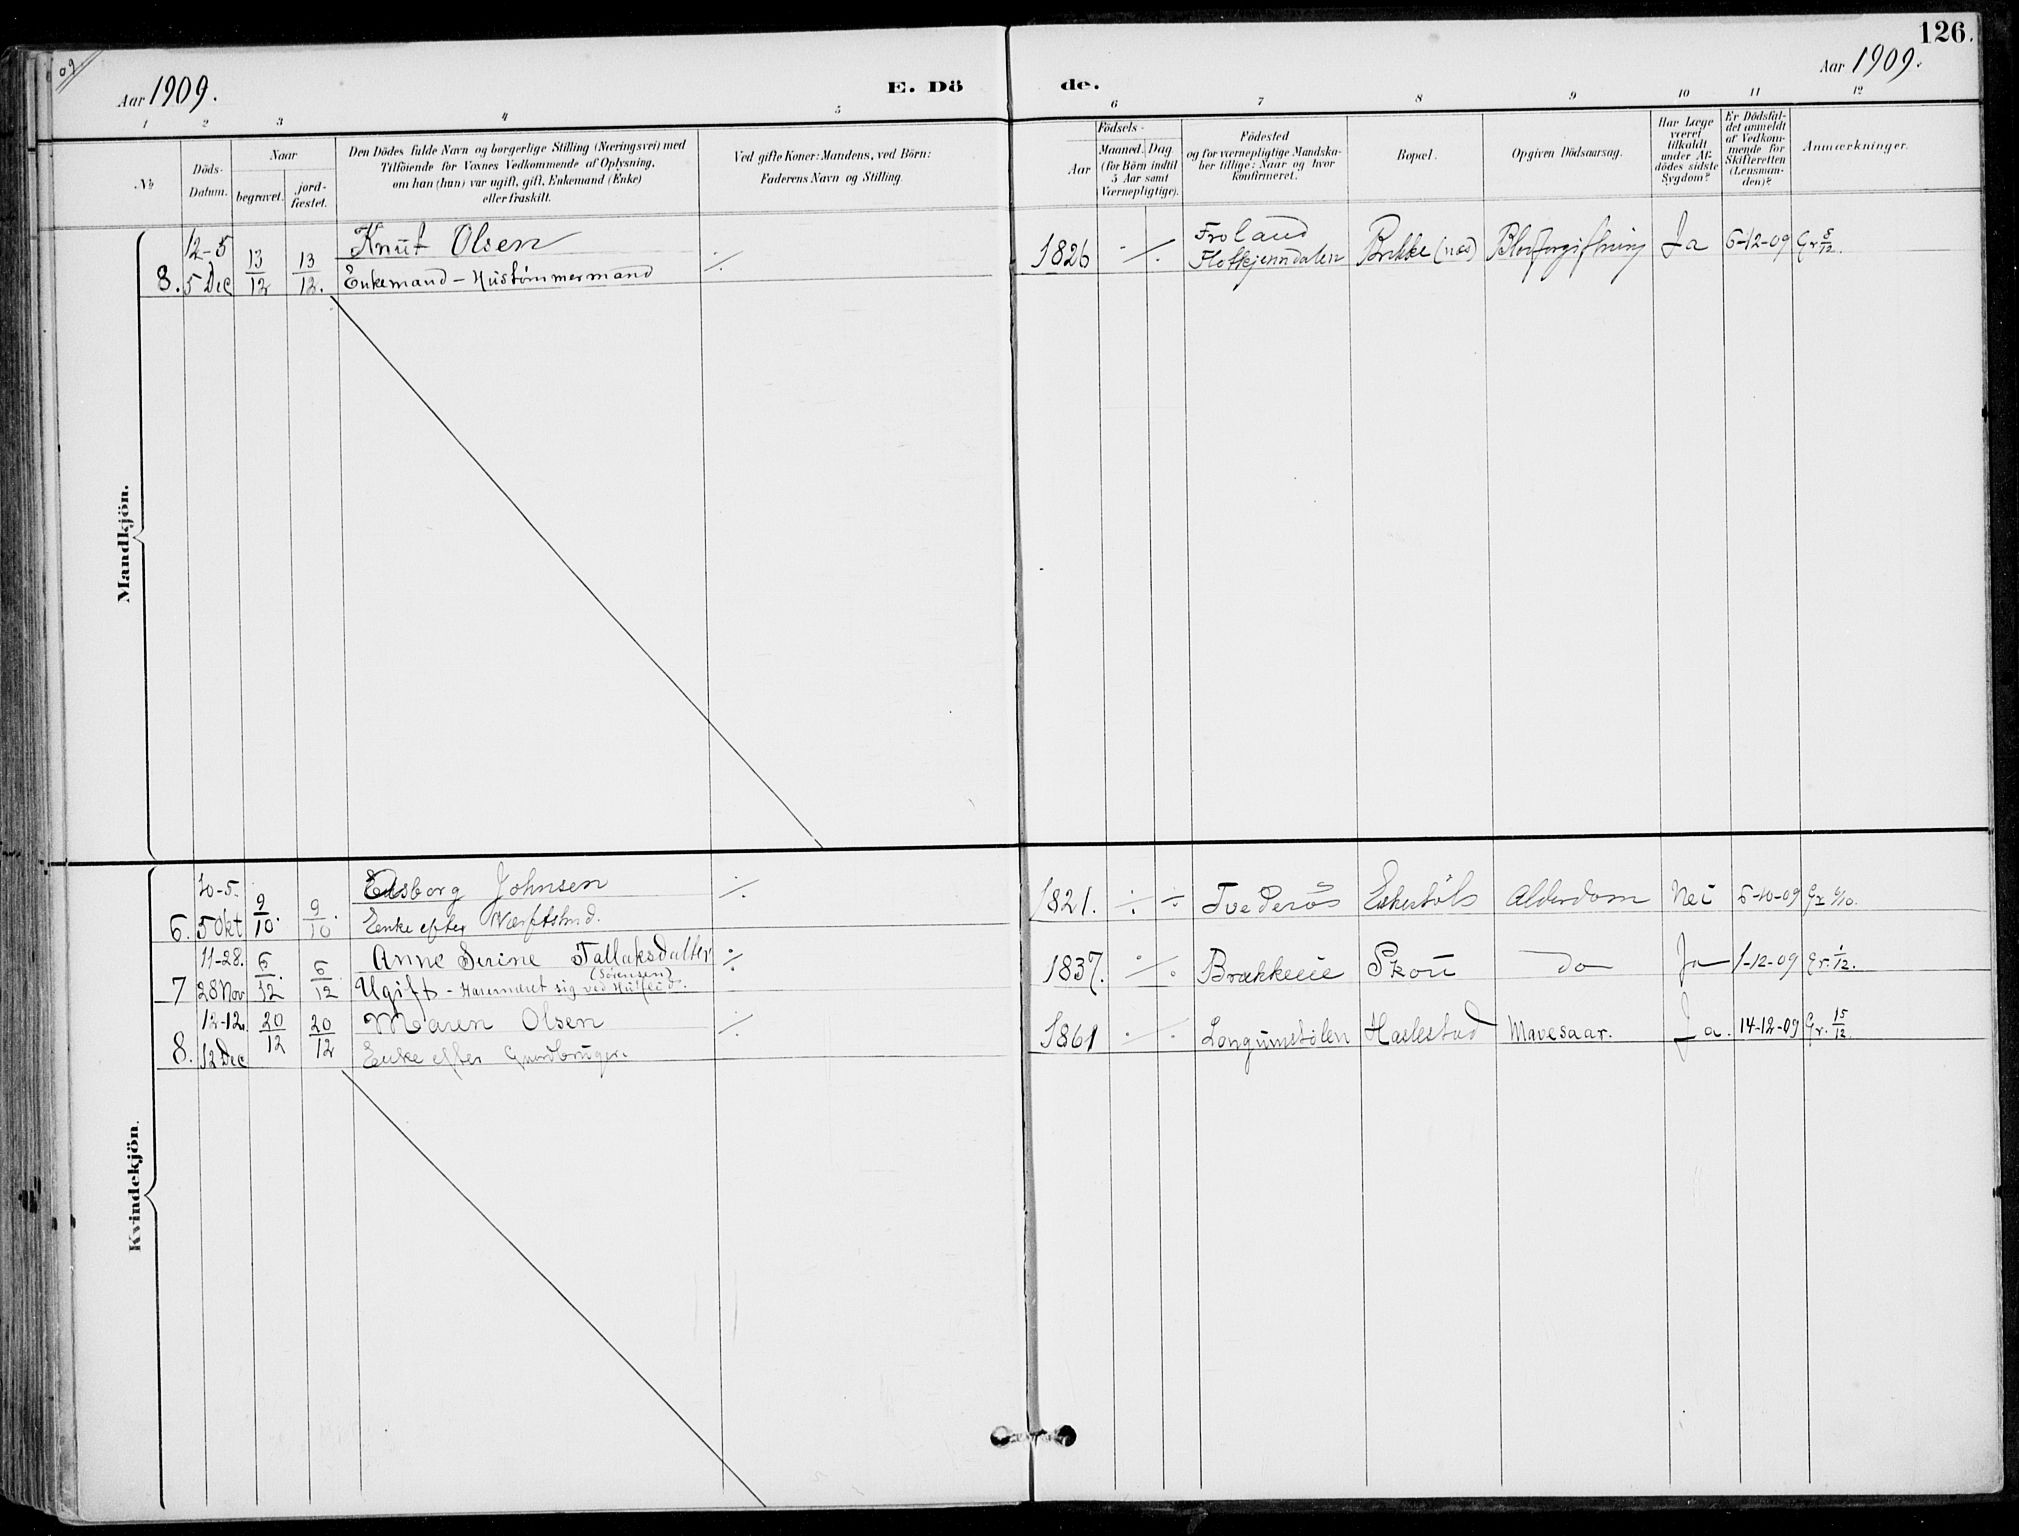 126.
09.
Aar 1909.
E. Dö
de.
Aar 1909.
1 2 3 4 5 6 7 8 9 10 11 12
№
Döds-
Datum.
Naar
begravet.
jord-
fæstet.
Den Dödes fulde Navn og borgerlige Stilling (Næringsvei) med
Tilföiende for Voxnes Vedkommende af Oplysning,
om han (hun) var ugift, gift, Enkemand (Enke)
eller fraskilt.
Ved gifte Koner: Mandens, ved Börn:
Faderens Navn og Stilling.
Födsels-
Aar
Maaned. Dag
(for Börn indtil
5 Aar samt
Værnepligtige).
Födested
og for værnepligtige Mandska-
ber tillige: Naar og hvor
Konfirmeret.
Bopæl.
Opgiven Dödsaarsag.
Har Læge
været
tilkaldt
under Af-
dödes sidste
Sygdom?
Er Dödsfal-
det anmeldt
af Vedkom-
mende for
Skifteretten
(Lensman-
den)?
Anmærkninger.
Mandkjön.
12-5 Knut Olsen Froland
8. 5 Dec 13/12 13/12. Enkemand – Hustömmermand ·/. 1826 - /. (næs) Blodforgiftning Ja 6-12-09 Gr 8/12.
Kvindekjön.
10-5. Johnsen
6. 5 Okt 9/10. 9/10. Enke efter ·/. 1821. ÷ ÷ Alderdom Nei 5-10-09 Gr 6/10.
11-28. Anne Serine Tallaksdatter
(Sörensen)
7 28 Nov 6/12. 6/12. Ugift - Harernæret sig ved ·/. 1837. ·/. Brækkeie Skou do Ja 1-12-09 Gr. 1/12.
12-12. Maren Olsen
8. 12 Dec 20/12 20/12 Enke efter Gaardbruger. ·/. 1861 ·/. Longumstölen Haslestad Mavesaar. Ja. 14-12-09 Gr. 15/12.